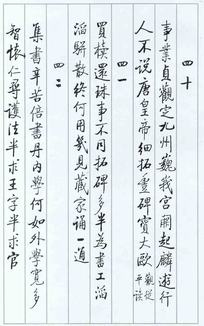 四十
事業貞觀定九州巍我宮闕起麟遊行
人不説唐皇帝細拓豐碑寶大歐 觀從平讀
四一
買櫝還珠事不同拓碑多半為書工滔
滔駢散終何用幾見藏家誦一通
四二
集書辛苦倍書丹内學何如外學寬多
智懷仁尊護法半求王字半求官